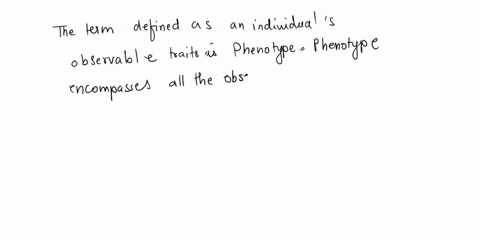 The term defined as an individual's
observable traits is Phenotype. Phenotype
encompasses all the obs